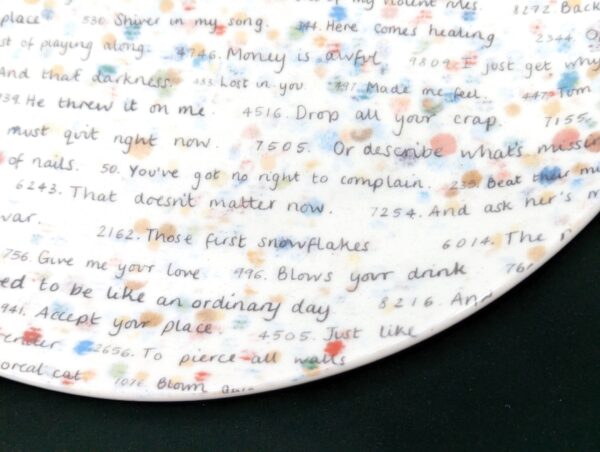 of my violent rules. 8272. Back
place 530. Shiver in my song. 344. Here comes healing 2344. O
st of playing along. 4746. Money is awful 9809. I just get why
And that darkness. 353. Lost in you 997. Made me feel. 447. Tom
939. He threw it on me. 4516. Drop all your crap. 7155.
must quit right now. 7505. Or describe what's missin
of nails. 50. You've got no right to complain. Beat their me
6243. That doesn't matter now. 7254. And ask her's m
war. 2162. Those first snowflakes 6014. The r
756. Give me your love 996. Blows your drink 76
ed to be like an ordinary day 8216. And
941. Accept your place. 4505. Just like
render 2656. To pierce all walls
oreal cat 1076. Blown